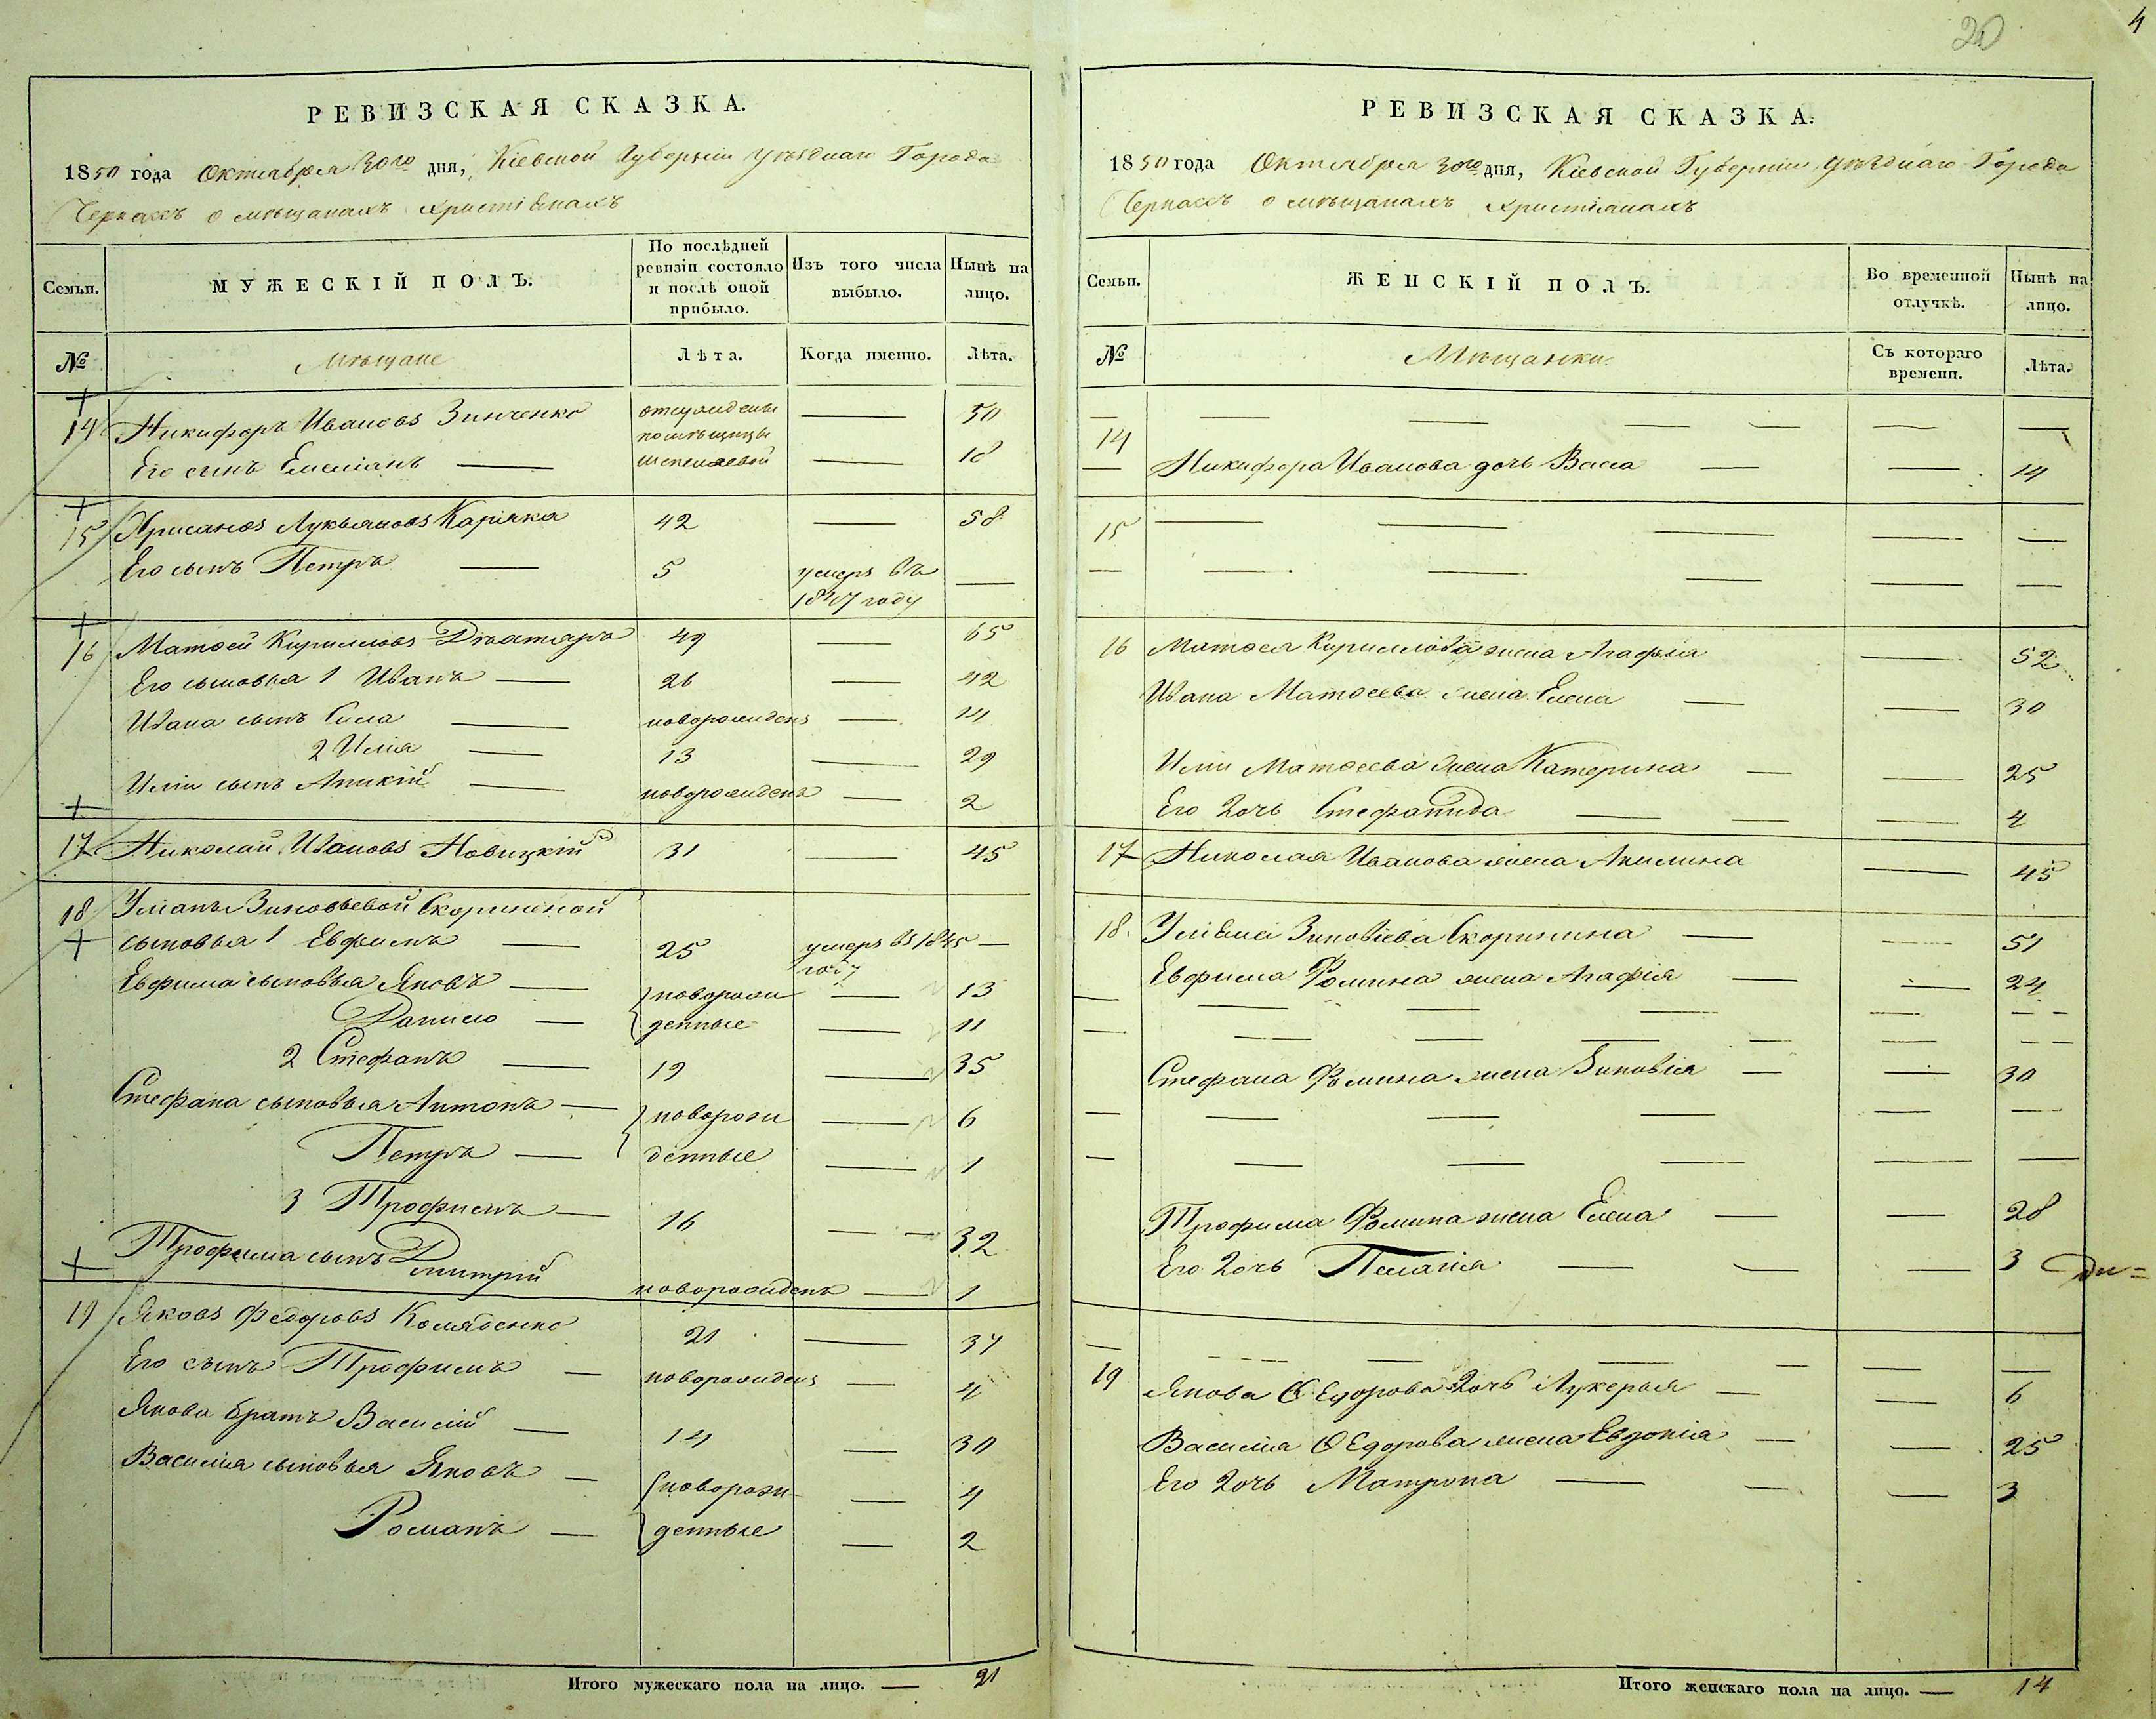 20
4
РЕВИЗСКАЯ СКАЗКА.
1850 года Октября 30го дня, Кіевской Губерніи уѣзднаго Города
Черкасъ о мѣщанахъ христіянахъ
Семьи.
МУЖЕСКІЙ ПОЛЪ.
По послѣдней ревизіи состояло и послѣ оной прибыло.
Изъ того числа выбыло.
Нынѣ на лицо.
№
Мѣщане
Лѣта.
Когда именно.
Лѣта.
14 Никифоръ Ивановъ Зинченко — 50
помѣщицы
Его сынъ Емеліанъ — — 18
15 Лукьяновъ Каряка 42 — 58
Его сынъ Петръ — 5 умеръ въ —
1847 году
16 Матѳей Кирилловъ 49 — 65
Его сыновья 1 Иванъ — 26 — 42
Ивана сынъ Сила — новорожденъ — 14
2 Илія — 13 — 29
Иліи сынъ Аникій — новорожденъ — 2
17 Николай Ивановъ Новицкій 31 — 45
18 Уліаны Зиновьевой Скорининой
сыновья 1 Евфимъ — 25 умеръ въ 1845 —
году
Евфима сыновья Яковъ — новорож — 13
Данило — денные — 11
2 Стефанъ — 19 — 35
Стефана сыновья Антонъ — новорож — 6
Петръ — денные — 1
3 Трофимъ — 16 — — 32
Трофима сынъ Дмитрій новорожденъ — 1
19 Яковъ Федоровъ Колябенко 21 — 37
Его сынъ Трофимъ — новорожденъ — 4
Якова братъ Василій — 14 — 30
Василія сыновья Яковъ — новорож — 4
Романъ — денные — 2
Итого мужескаго пола на лицо. — 21
РЕВИЗСКАЯ СКАЗКА.
1850 года Октября 30го дня, Кіевской Губерніи уѣзднаго Города
Черкасъ о мѣщанахъ христіянахъ
Семьи.
ЖЕНСКІЙ ПОЛЪ.
Во временной отлучкѣ.
Нынѣ на лицо.
№
Мѣщанки.
Съ котораго времени.
Лѣта.
14
Никифора Иванова дочь Васса — — 14
15
16 Матѳея Кириллова жена Агафія — 52
Ивана Матѳеева жена Елена — — 30
Иліи Матѳеева жена Катерина — — 25
Его дочь Стефанида — — — 4
17 Николая Иванова жена Акилина — 45
18 Уліяна Зиновіева Скоринина — — 51
Евфима Фомина жена Агафія — — 24
Стефана Фомина жена Зиновія — — 30
Трофима Фомина жена Елена — — 28
Его дочь Пелагія — — — 3
19
Якова Ѳедорова дочь Лукерья — — 6
Василія Ѳедорова жена Евдокія — — 25
Его дочь Матрона — — — 3
Итого женскаго пола на лицо. — 14